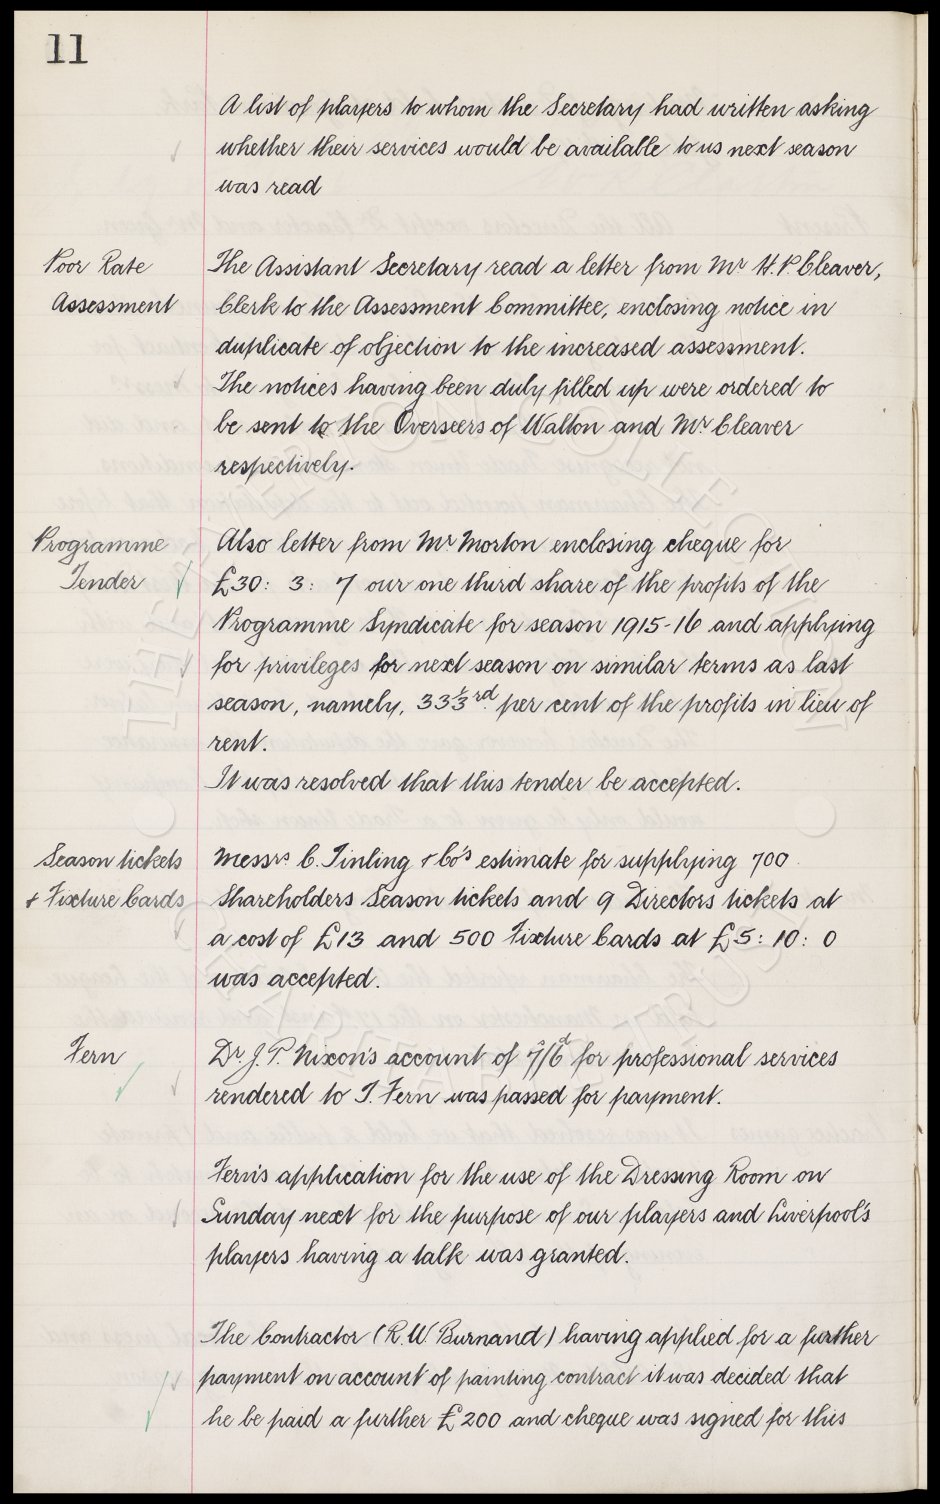 11
A list of players to whom the Secretary had written asking
whether their services would be available to us next season
was read
Poor Rate
Assessment
The Assistant Secretary read a letter from Mr H. P. Cleaver,
Clerk to the Assessment Committee, enclosing notice in
duplicate of objection to the increased assessment.
The notices having been duly filled up were ordered to
be sent to the Overseers of Walton and Mr Cleaver
respectively.
Programme
Tender
Also letter from Mr Morton enclosing cheque for
£30: 3: 7 our one third share of the profits of the
Programme Syndicate for season 1915-16 and applying
for privileges for next season on similar terms as last
season, namely, 33⅓rd per cent of the profits in lieu of
rent.
It was resolved that this tender be accepted.
Season tickets
& Fixture Cards
Messrs C. Tinling & Co's estimate for supplying 700
Shareholders Season tickets and 9 Directors tickets at
a cost of £13 and 500 Fixture Cards at £5: 10: 0
was accepted.
Fern
Dr. J. P. Nixon's account of 7s/6d for professional services
rendered to T. Fern was passed for payment.
Fern's application for the use of the Dressing Room on
Sunday next for the purpose of our players and Liverpool's
players having a talk was granted.
The Contractor (R. W Burnand) having applied for a further
payment on account of painting contract it was decided that
he be paid a further £200 and cheque was signed for this
THE EVERTON COLLECTION
CHARITABLE TRUST